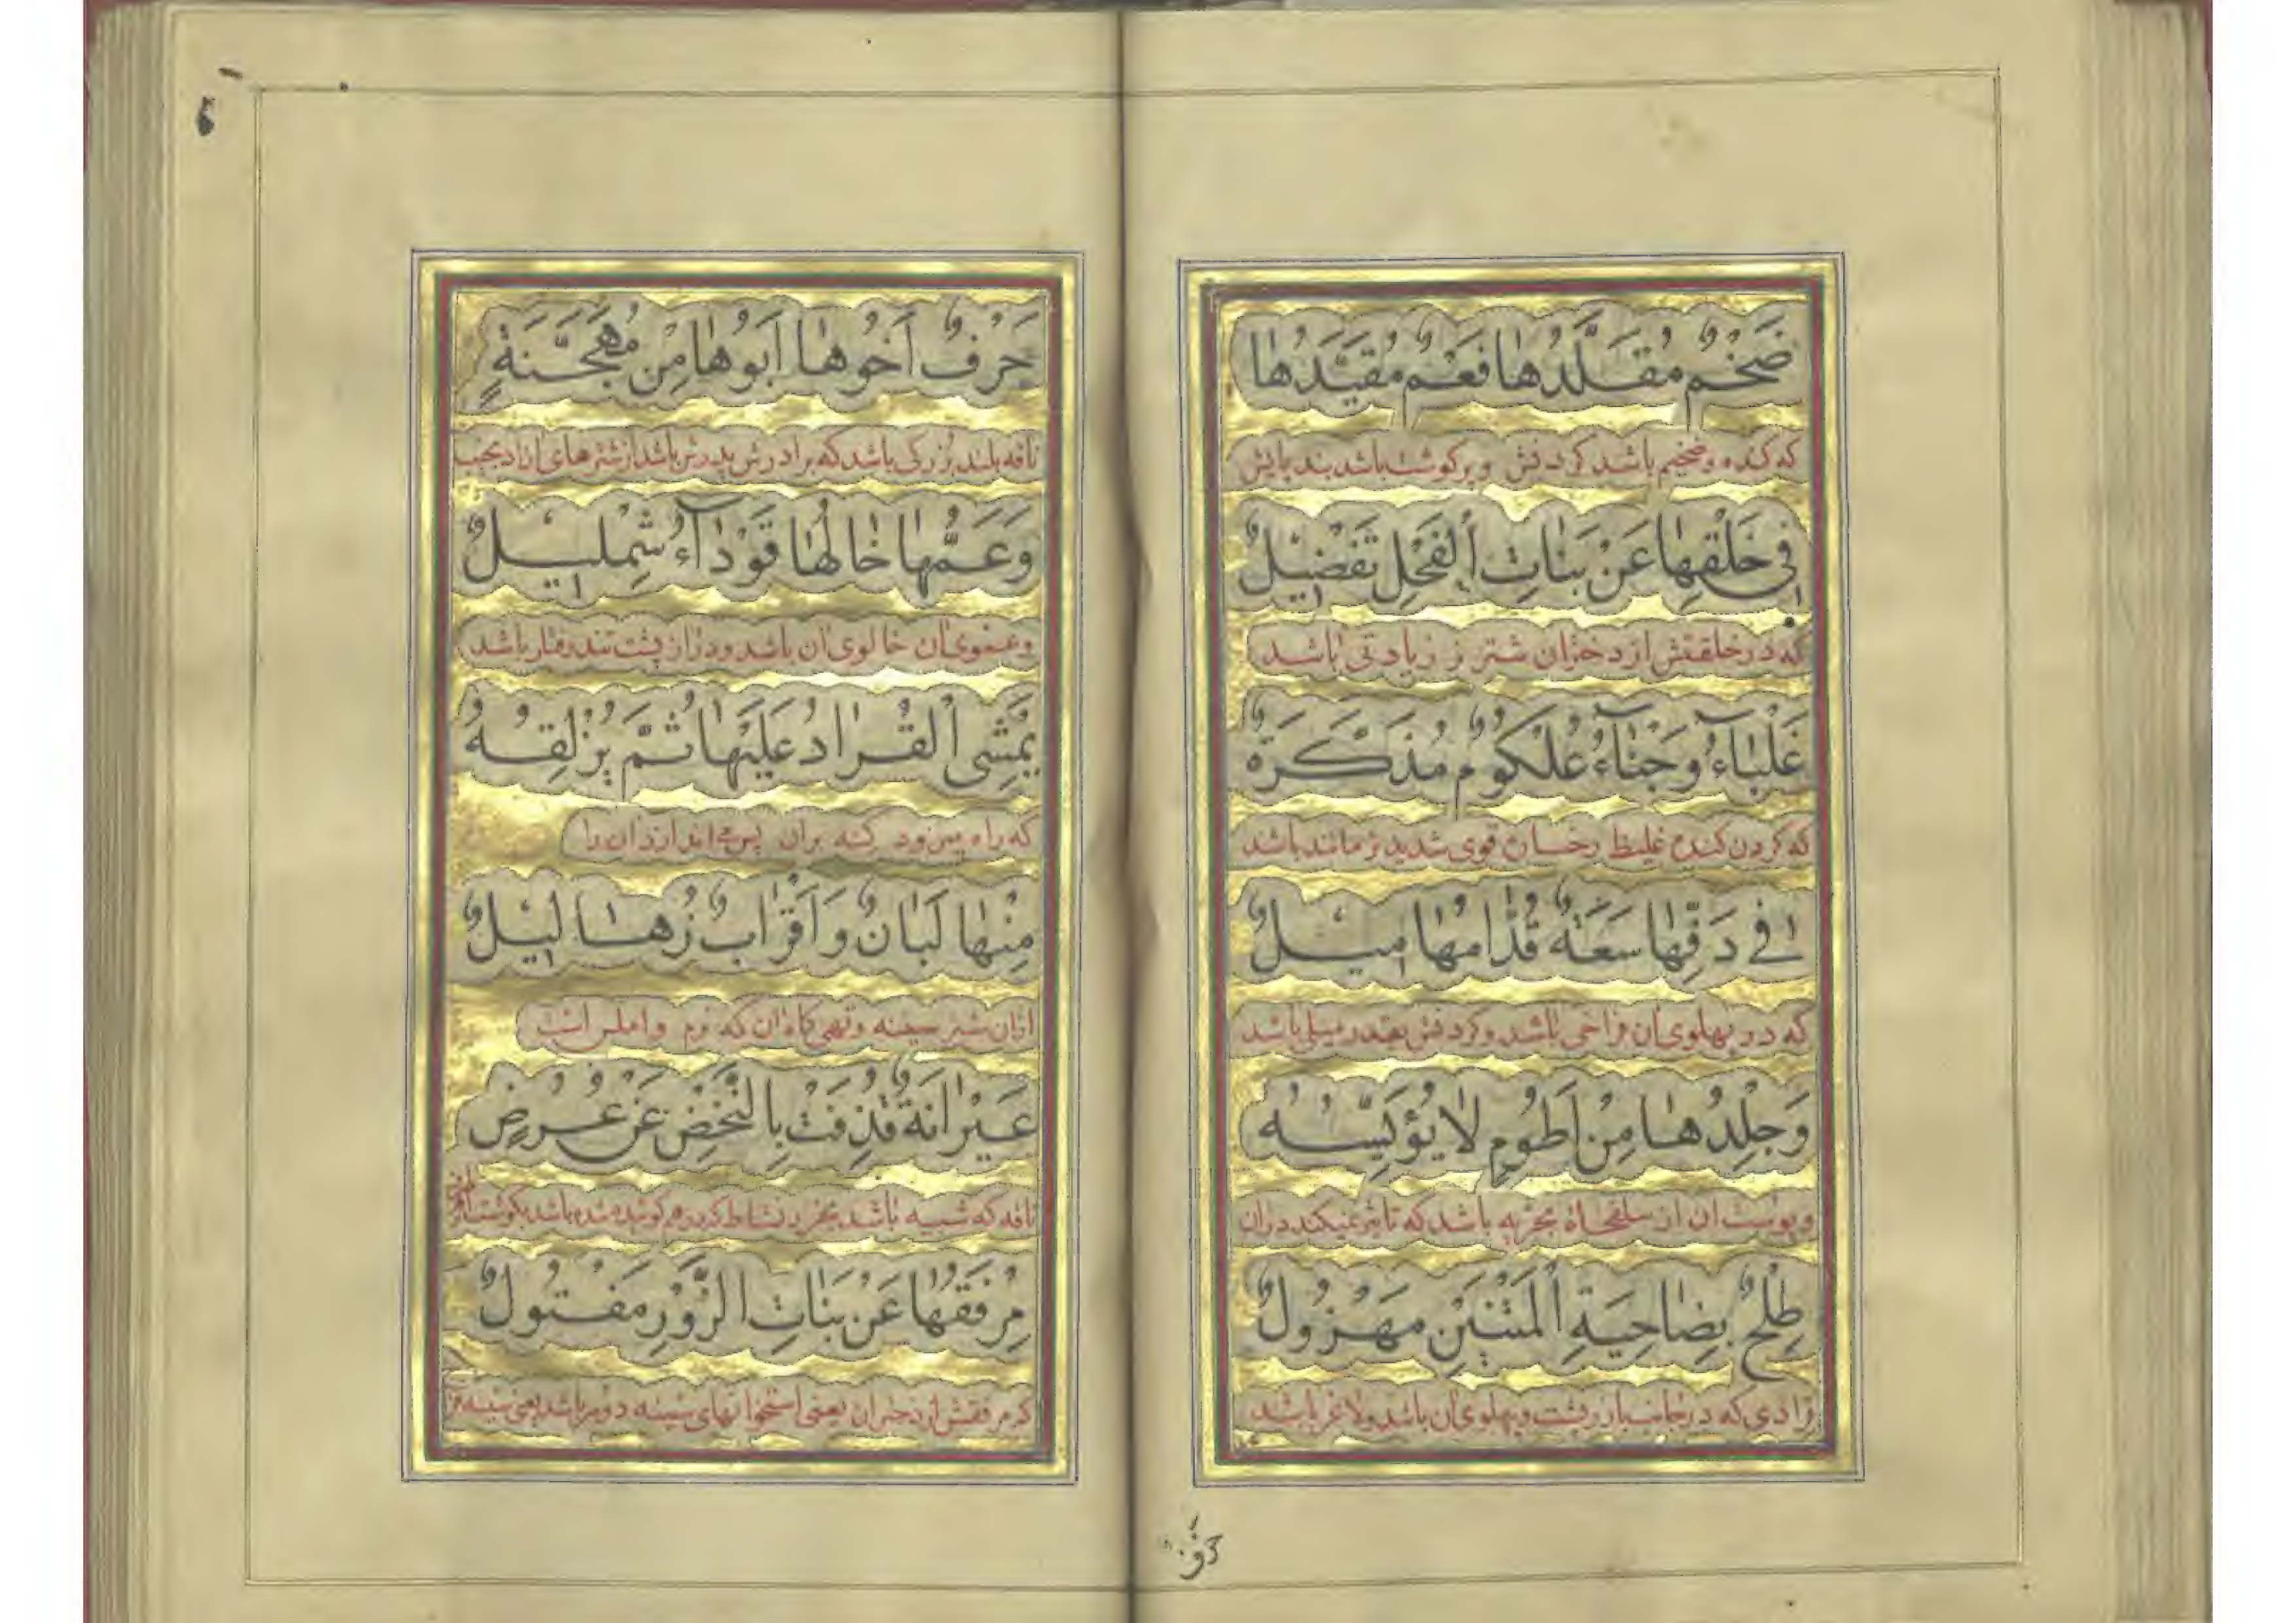 ضَخْمٌ مُقَلَّدُهٰا فَعْمٌ مُقَيَّدُهٰا
که کنده و ضخیم باشد کردنش و پرکوشت باشد بند پایش
فِی خَلْقِهٰا عَنْ بَنٰاتِ الْفَحْلِ تَفْضٖیْلٌ
که در خلقتش از دختران شتر نر زیادتی باشد
غَلْبٰآءُ وَجْنٰآءُ عُلْکُوْمٌ مُذَکَّرَةٌ
که کردن کنده غلیظ رخسان قوی شدید نر مانند باشد
فی دَفِّهٰا سَعَةٌ قُدّٰامُهٰا مٖیْلٌ
که در پهلوی ان فراخی باشد و کردنش بقدر میلی باشد
وَجِلْدُهٰا مِنْ اَطُوْمٍ لٰا یُؤَیِّسُهُ
و پوست ان از سلحفاة بحریه باشد که تاثیر نمیکند در ان
طِلْحٌ بِضٰاحِیَةِ الْمَتْنَیْنِ مَهْزُوْلٌ
قرادی که در جانب بارز پشت و پهلوی ان باشد و لاغر باشد
حرف
حَرْفٌ اَخُوْهٰا اَبُوْهٰا مِنْ مُهَجَّنَةٍ
ناقه بلند بزرکی باشد که برادرش پدرش باشد از شترهای ازاد نجیب
وَعَمُّهٰا خٰالُهٰا قَوْدٰآءُ شِمْلٖیْلٌ
و عموی ان خالوی ان باشد و دراز پشت تند رفتار باشد
یَمْشِی الْقُرٰادُ عَلَیْهٰا ثُمَّ یُزْلِقُهُ
که راه میرود کنه بران پس می اندازد ان را
مِنْهٰا لَبٰانٌ وَاَقْرٰابٌ زُهٰالٖیْلٌ
ازان شتر سینه و تهی کاه ان که نرم و املس است
عَیْرٰانَةٌ قُذِفَتْ بِالنَّحْضِ عَنْ عُرُضٍ
ناقه که شبیه باشد بخر در نشاط کردن کوشتمند باشد بکوشت
مِرْفَقُهٰا عَنْ بَنٰاتِ الزَّوْرِ مَفْتُوْلٌ
که مرفقش از دختران یعنی استخوانهای سینه دور باشد یعنی سینه